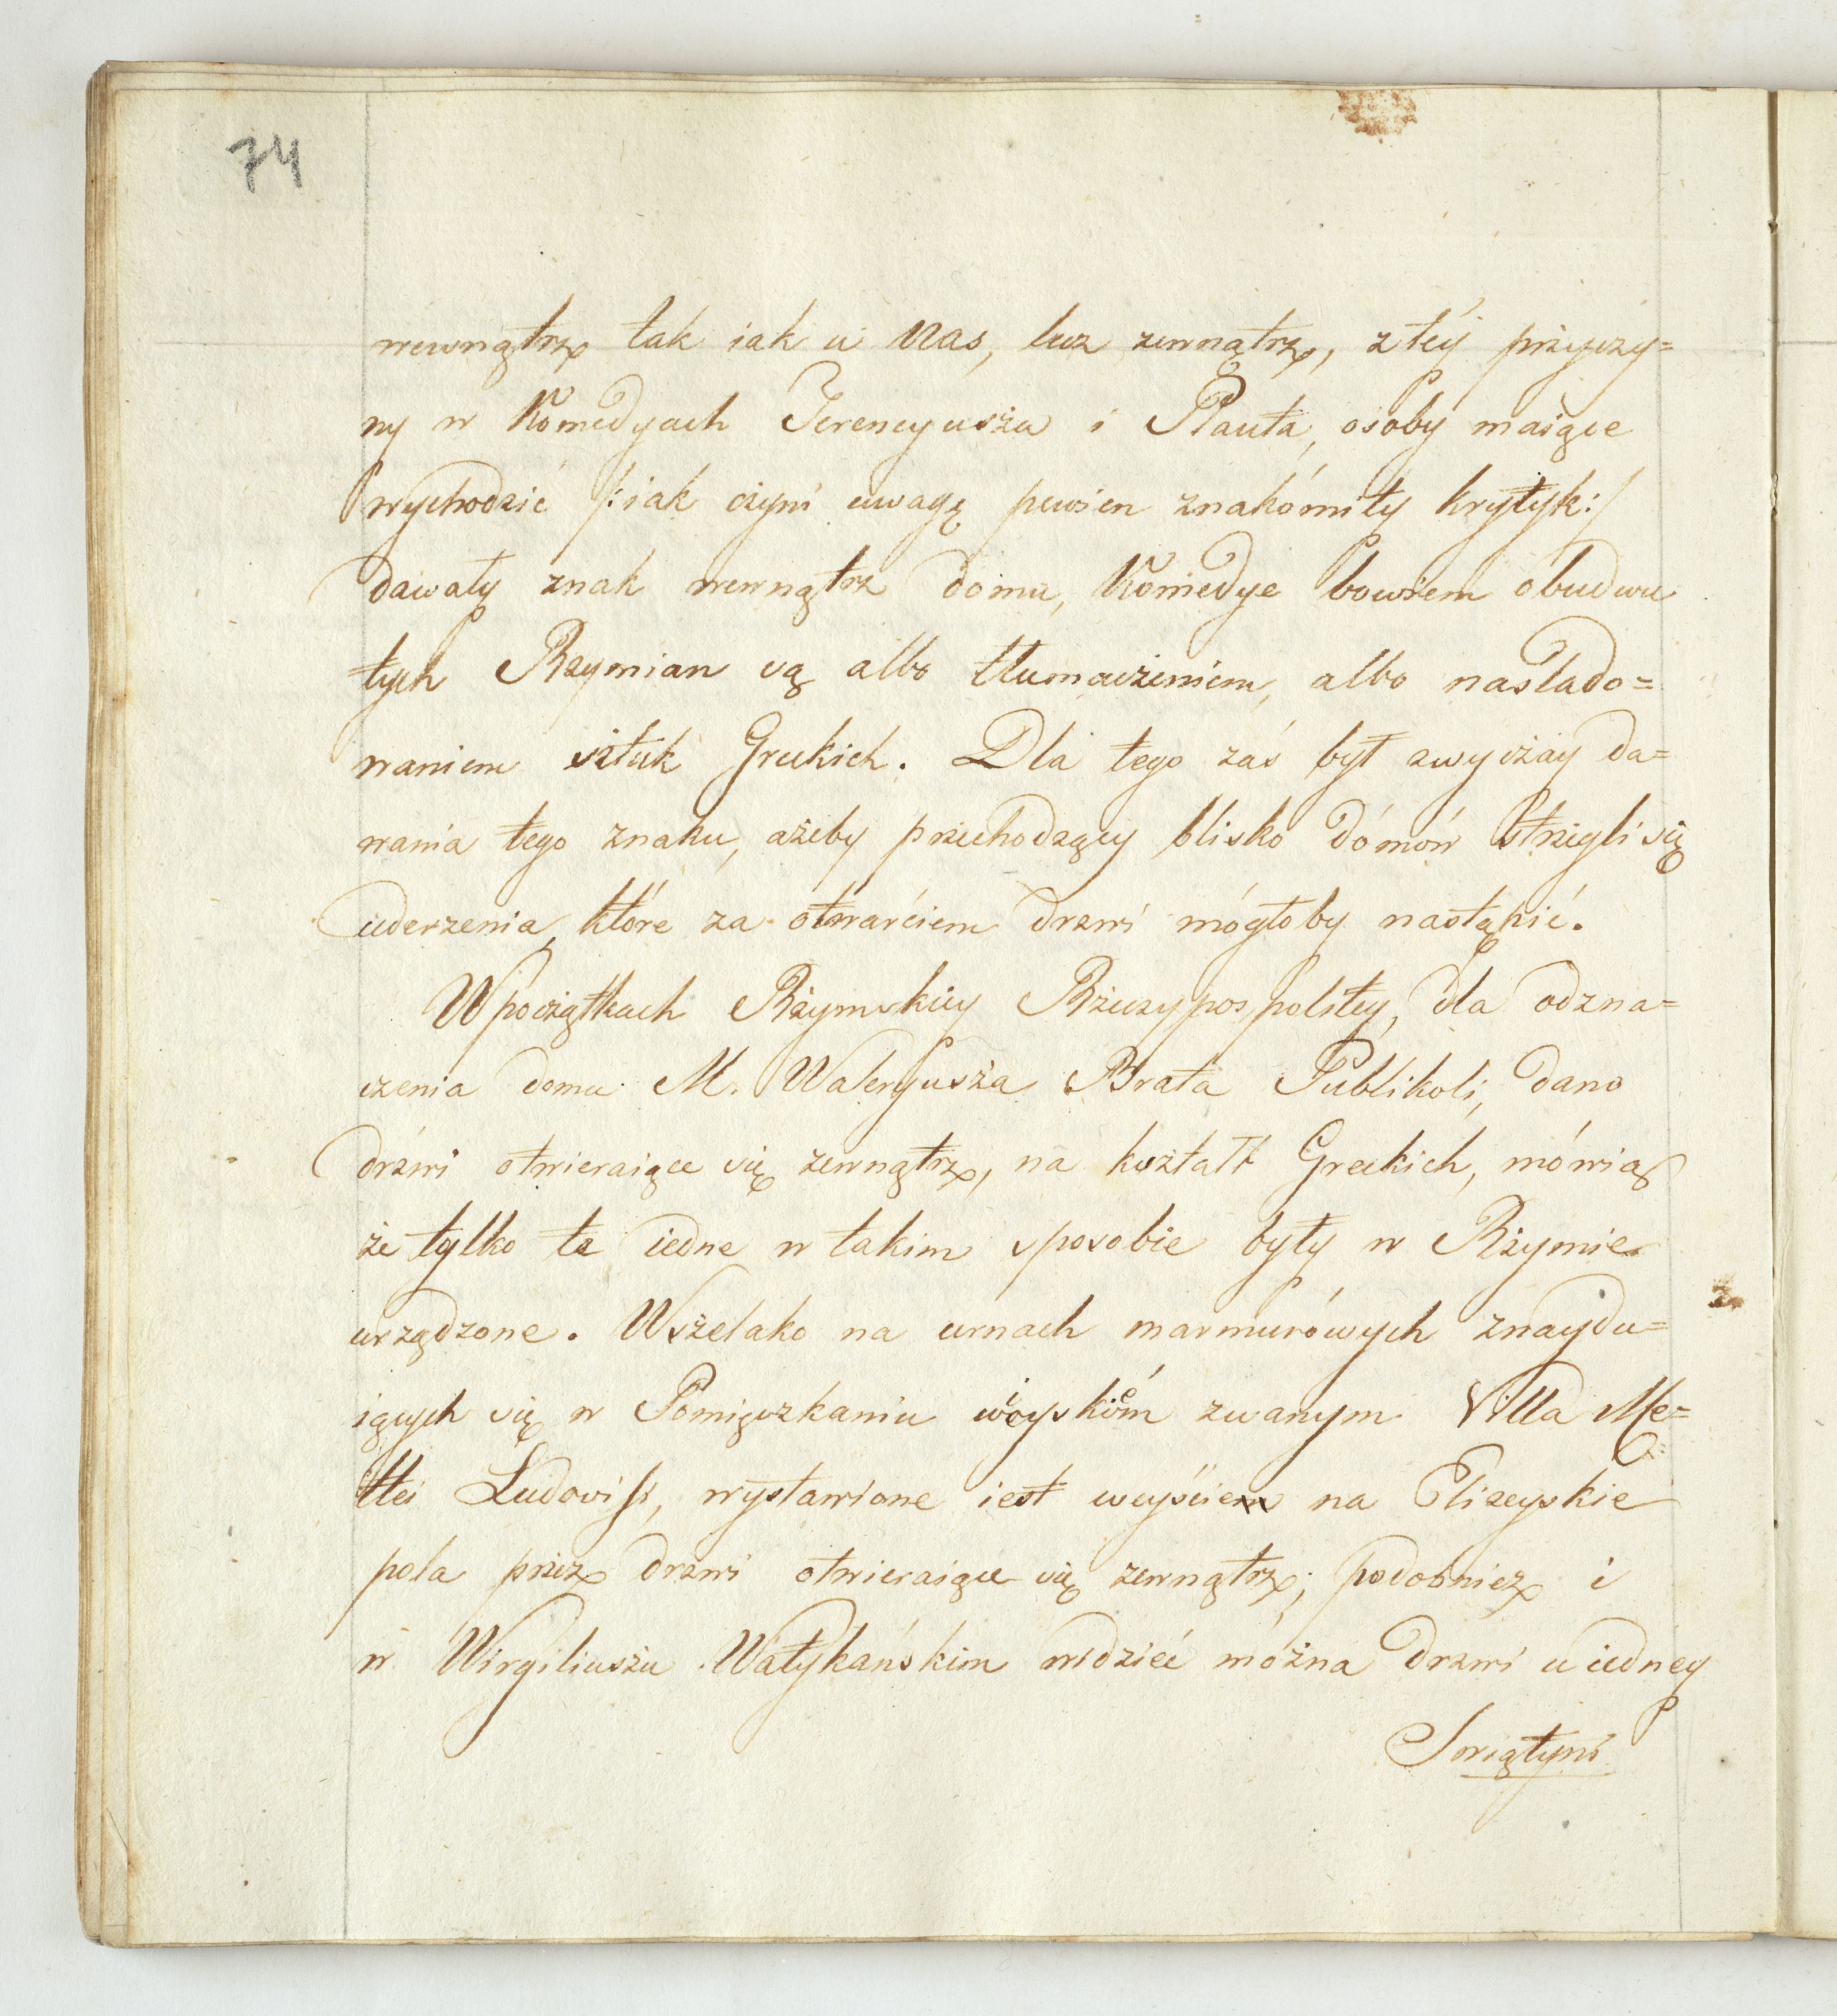 74
wewnątrz tak iak u Nas, lecz zewnątrz, z téy przyczy=
ny w Komedyach Terencyusza i Plauta, osoby maiące
wychodzić /:iak czyni uwagę pewien znakómity krytyk:/
dawały znak wewnątrz domu, Komedye bowiem obudwu
tych Rzymian są albo tłumaczeniem, albo naślado=
waniem sztuk Greckich. Dla tego zaś był zwyczay da=
wania tego znaku, ażeby przechodzący blisko dómów strzegli się
uderzenia, które za otwarciem drzwi mógłoby nastąpić.
W początkach Rzymskiey Rzeczypospolitey, dla odzna=
czenia domu M. Waleryusza Brata Publikoli, dano
drzwi otwieraiące się zewnątrz, na kształt Greckich, mówią
że tylko te iedne w takim sposobie były w Rzymie
urządzone. Wszelako na urnach marmurówych znaydu=
iących się w Pomięszkaniu wieyskiém zwanym Villa Ma=
ttei Ludovisi, wystawione iest weyście na Elizeyskie
pola przez drzwi otwieraiące się zewnątrz; podobniez i
w Wirgiliuszu Watykańskim widzieć można drzwi u iednéy
Swiątyni